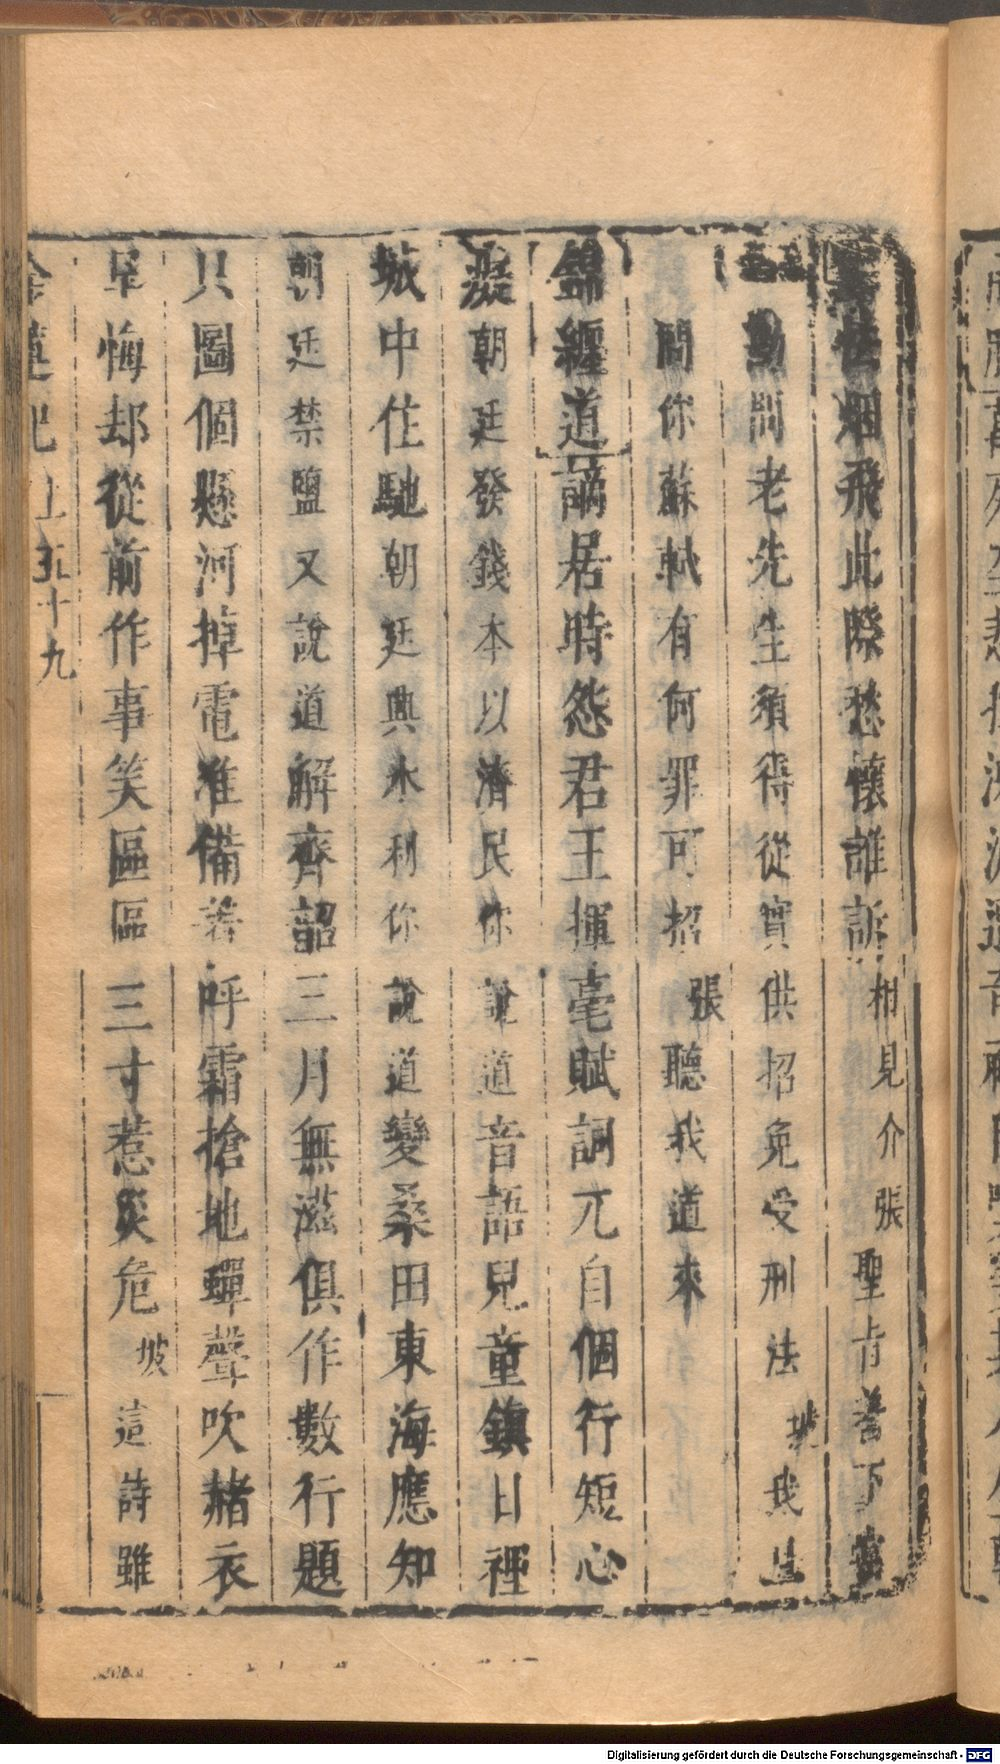 烟飛此際愁懷誰訴相見介張聖旨着下
勘問老先生須得從實供招免受刑法坡我
問你蘇軾有何罪可招張聽我道來
錦纏道謫居時怨君王揮毫賦詞兀自個行短心
癡朝廷發錢本以濟民你說道音語兒童鎮日裡
城中住馳朝廷興水利你說道變桑田東海應知
朝廷禁鹽又說道解齊韶三月無滋俱作數行題
只圖個懸河掉電准備着呼霜搶地蟬聲吹赭衣
早悔却從前作事笑區區三寸惹災危坡這詩雖
金蓮記上五十九
Digitalisierung gefördert durch die Deutsche Forschungsgemeinschaft - DFG